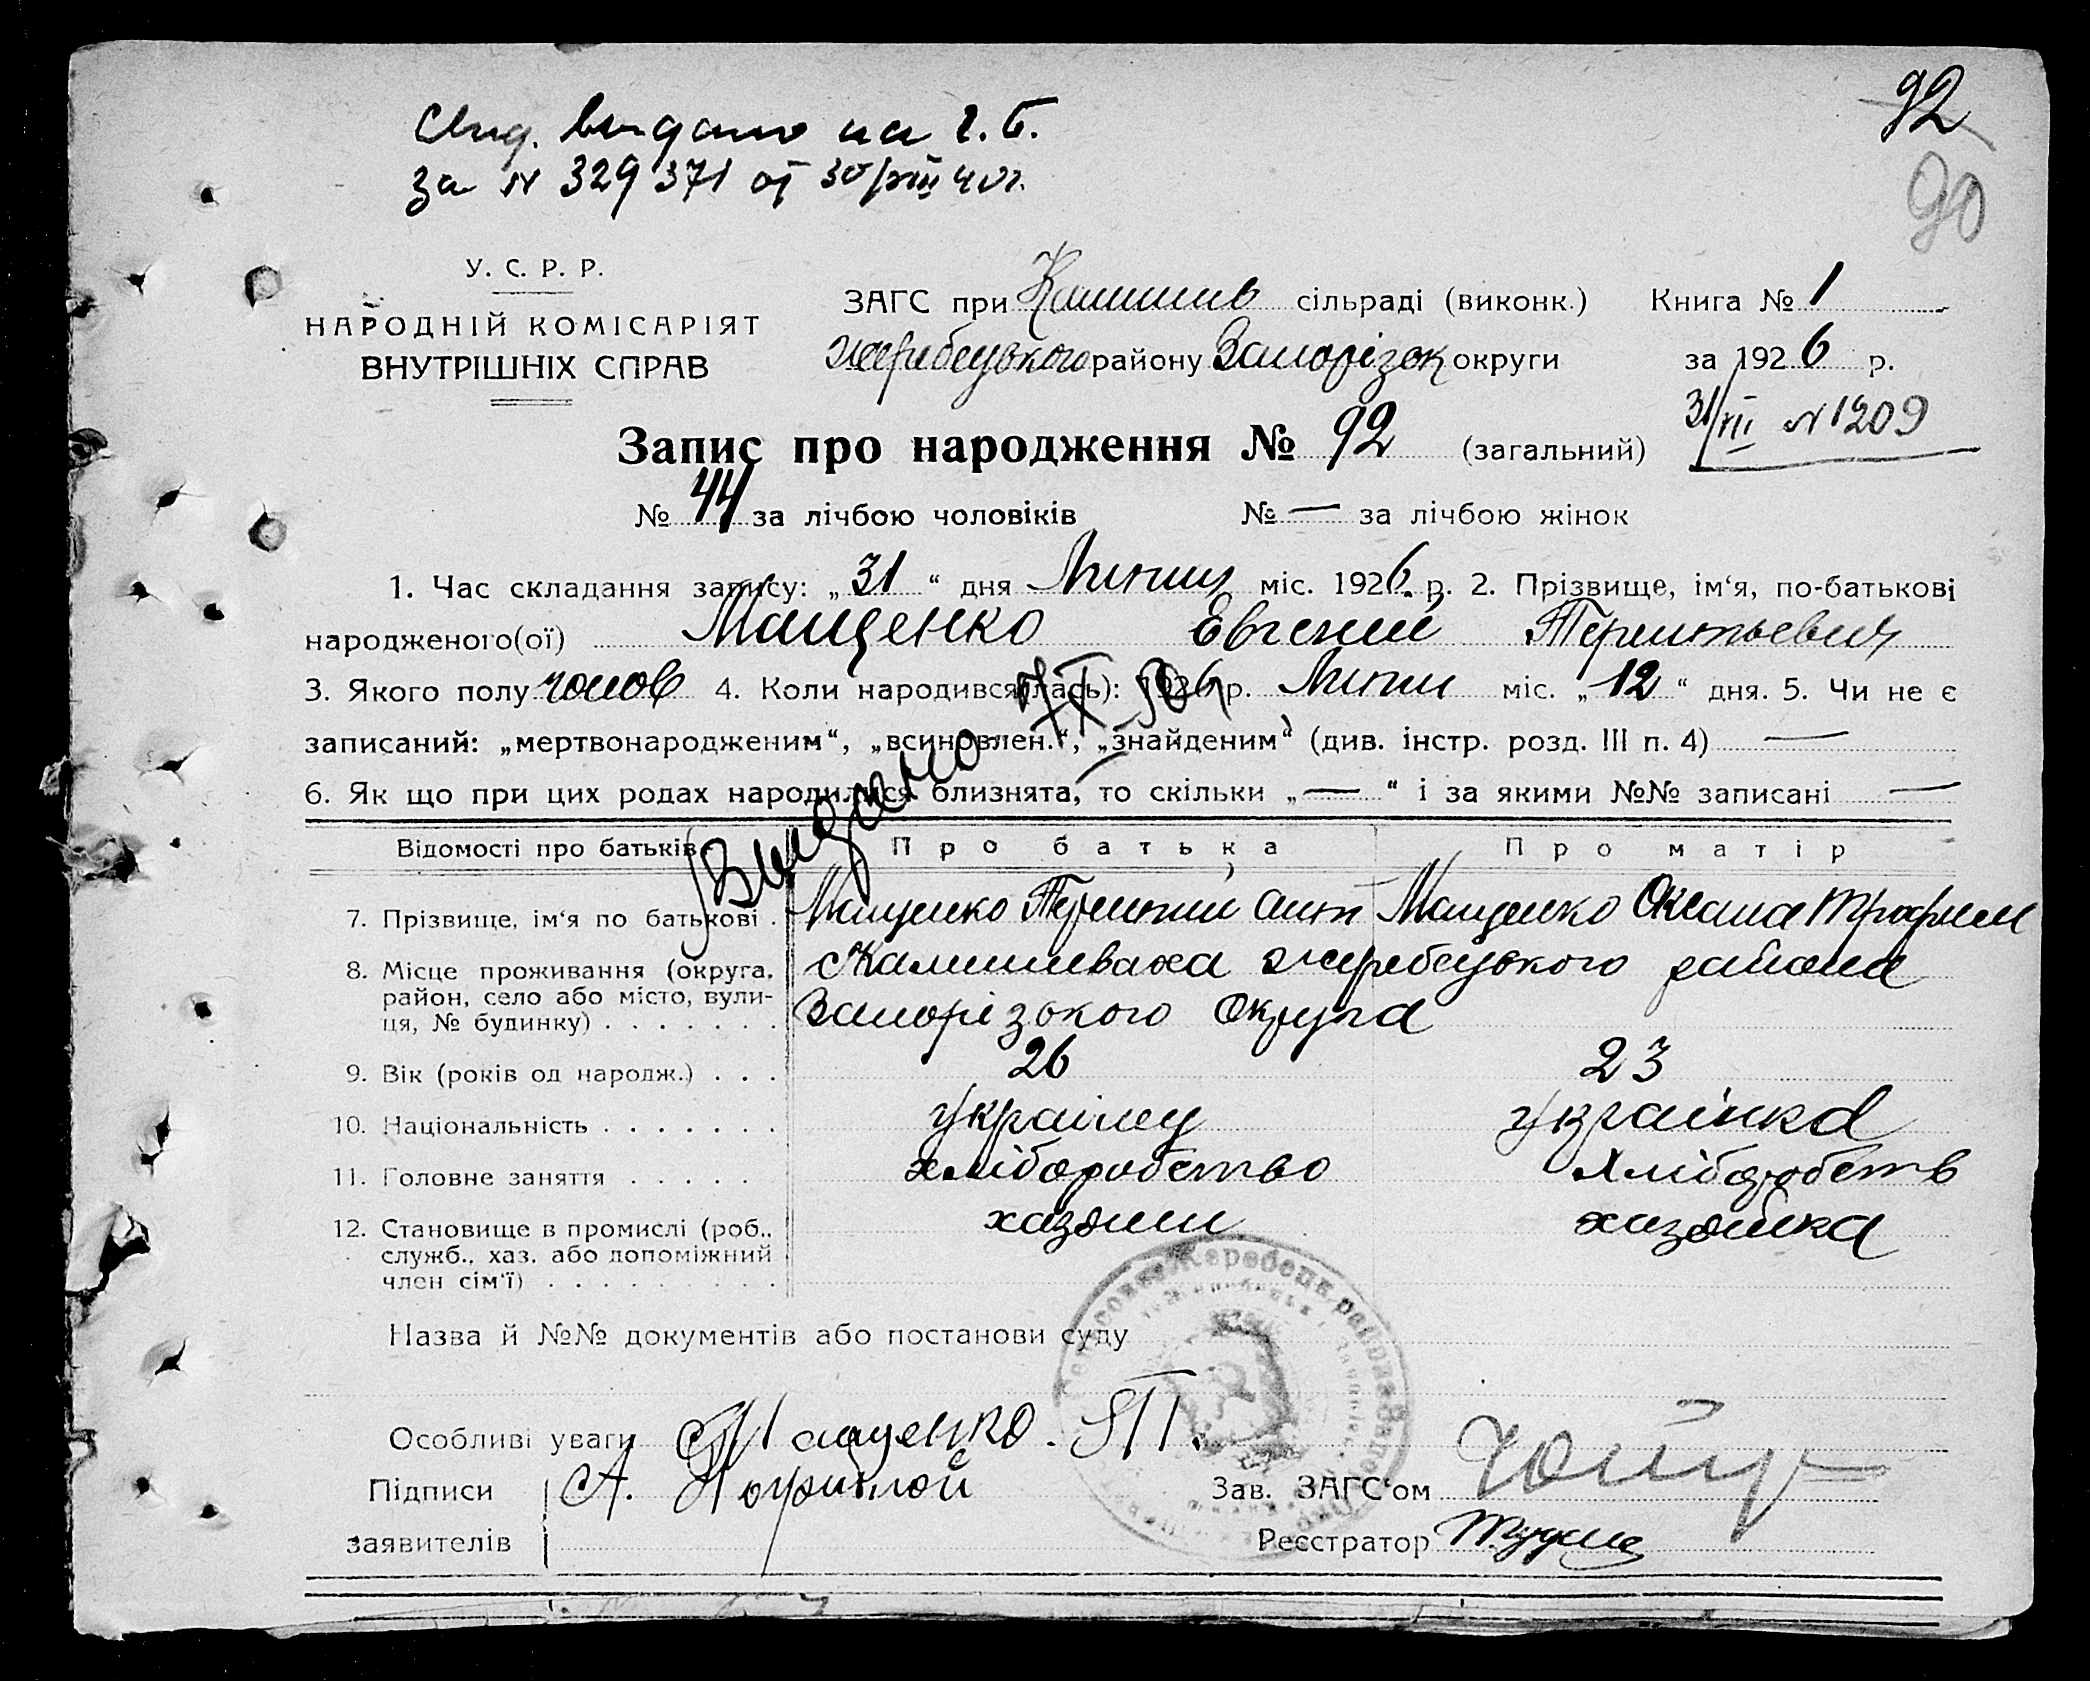 92
90
видано на г. б.
за N 329371 от 30/VIII 40 г.
У. С. Р. Р.
НАРОДНІЙ КОМІСАРІЯТ
ВНУТРІШНІХ СПРАВ
ЗАГС при Камишив сільраді (виконк.) Книга № 1
Жеребецького району Запорізок округи за 1926 р.
31/VIII N 1209
Запис про народження № 92 (загальний)
№ 44 за лічбою чоловіків № — за лічбою жінок
1. Час складання запису: „31“ дня Липня міс. 1926 р. 2. Прізвище, ім‘я, по-батькові
народженого(ої) Мащенко Евгений Терентьевич
3. Якого полу чолов 4. Коли народився(лась): 1926 р. Липня міс. „12“ дня. 5. Чи не є
записаний: „мертвонародженим“, „всиновлен.“, „знайденим“ (див. інстр. розд. III п. 4) —
6. Як що при цих родах народилися близнята, то скільки „—“ і за якими №№ записані —
Видано
Відомості про батьків Про батька Про матір
7. Прізвище, ім‘я по батькові . Мащенко Терентий Ант Мащенко Оксана Трофим
8. Місце проживання (округа, с Камишеваха Жеребецького района
район, село або місто, вули-
ця, № будинку) . . . . . . . Запорізького Округа
9. Вік (років од народж.) . . . 26 23
10. Національність . . . . . . . українец українка
11. Головне заняття . . . . . хліборобство Хліборобств
12. Становище в промислі (роб., хазяин хазяйка
служб., хаз. або допоміжний
член сім‘ї) . . . . . . . . .
Назва й №№ документів або постанови суду
Особливі уваги Мащенко. Т.
Підписи А.
заявителів
Зав. ЗАГС‘ом
Реєстратор